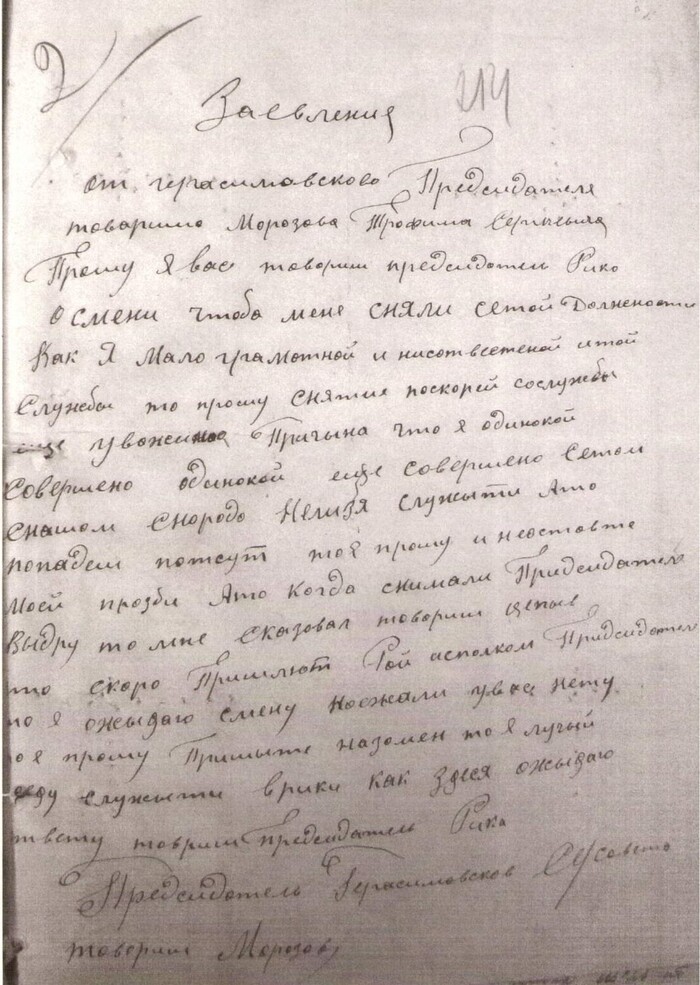 2
214
Заевления
от герасимавсково Председателя
товаришо Морозова Трофима Сергиевыча
Прошу я вас товориш председатель Рико
о смени чтоба мене сняли сетой Должности
Как я мало грамотной и нисотвсетеной итой
Службы то прошу снятие поскорей сослужбы
еще уважиное Причына что я одинокой
совершено одинокой еще совершено Сетом
снашом Снородо Нельзя Служыти Ато
попадем потсут то я прошу и неоставте
моей прозби Ато когда снимали Придсидателе
Выдру то мне Сказовал товориш
что скоро Пришлют Рой асполком Придсидател
то я ожыдаю смену Ноежали увас нету
то я прошу Пришыте назомен то я лучый
буду служыти врики как здеся ожыдаю
ответу товриш Председатель Рика
Председатель Герасимовсков С/Совето
товориш Морозов